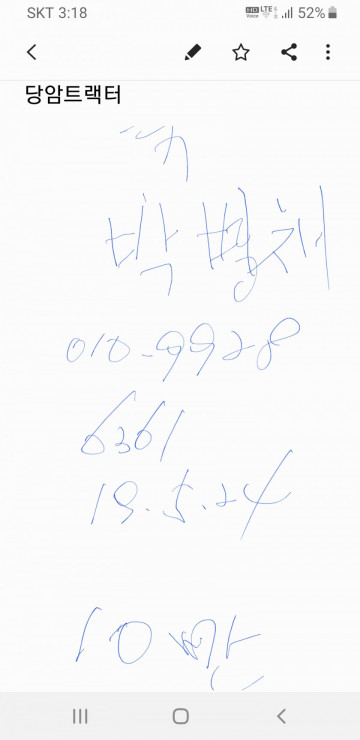 SKT 3:18 HD Voice LTE 52%
당암트랙터
박병채
010-9928
6361
19.5.24
10만